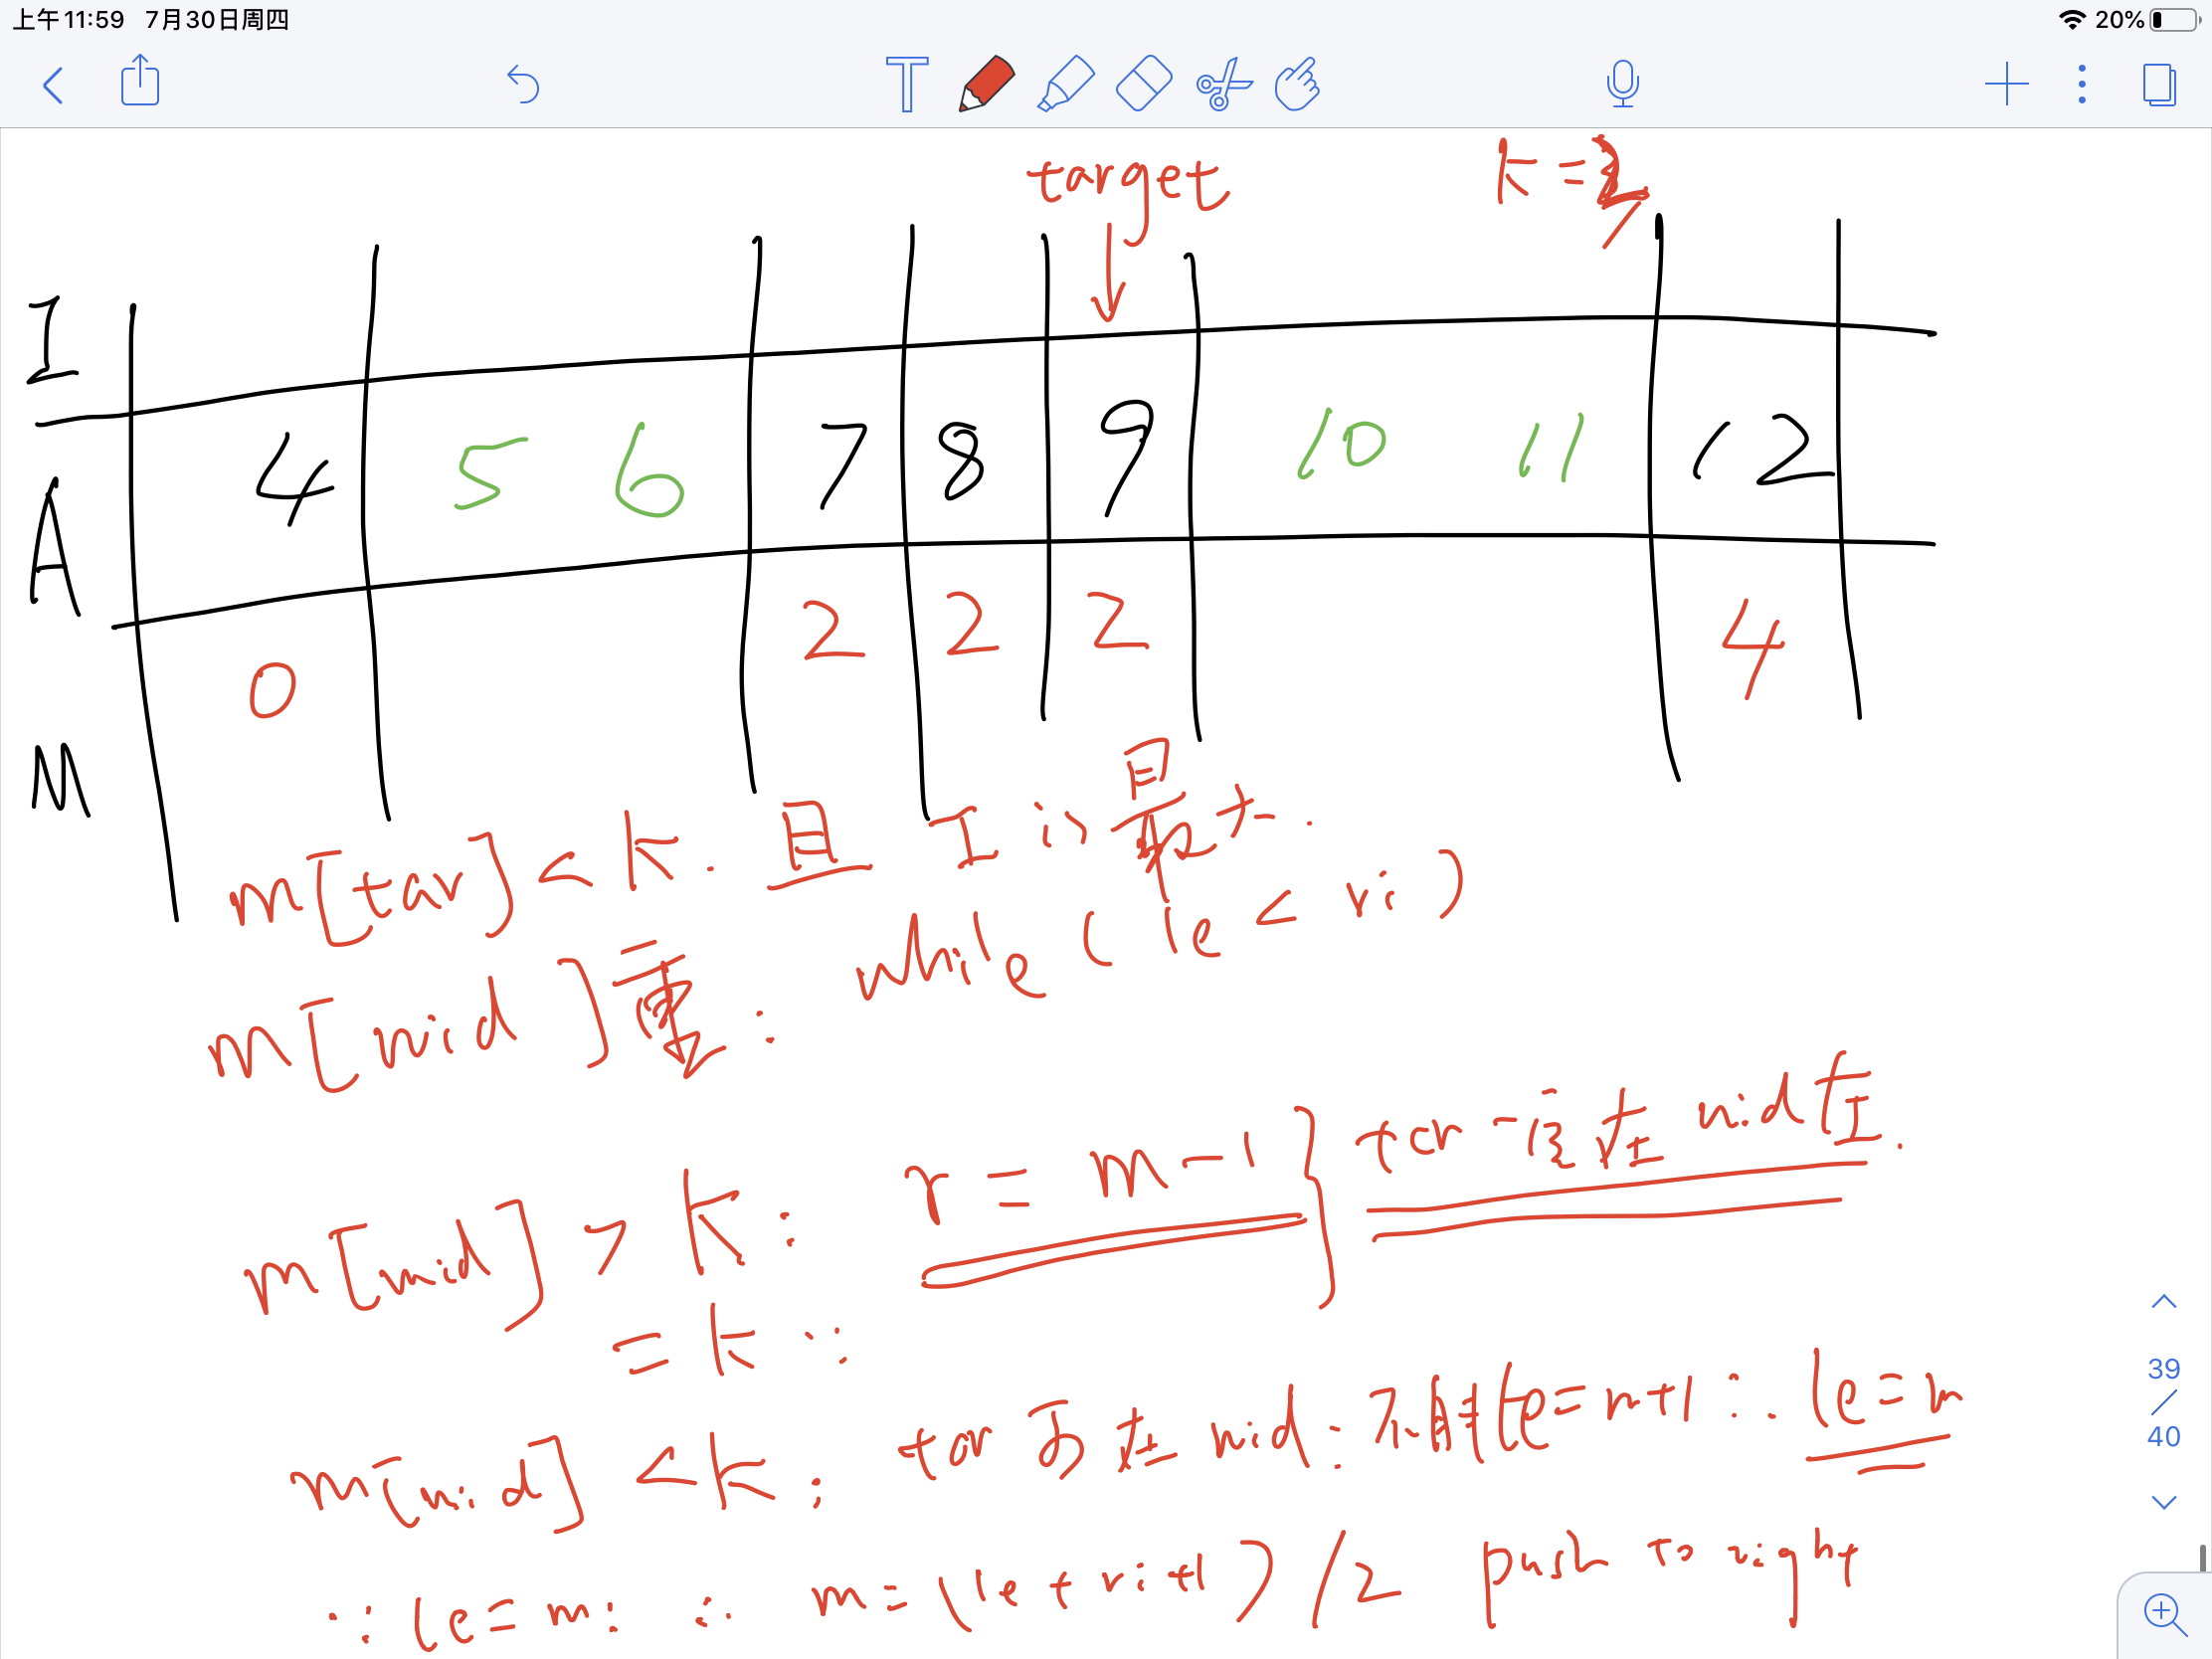 上午11:59 7月30日周四
20%
target
k =
I
A 4 5 6 7 8 9 10 11 12
M 0 2 2 2 4
m[tar] < k. 且 I is 最大.
m[mid] 重: while (le < ri)
m[mid] > k: r = m-1 } tar 一定在 mid 左.
= k:
m[mid] < k: tar 在 mid: 不 le = m+1 ∴ le = m
∵ le = m: ∴ m = (le + ri + 1)/2 push to right
39
/
40